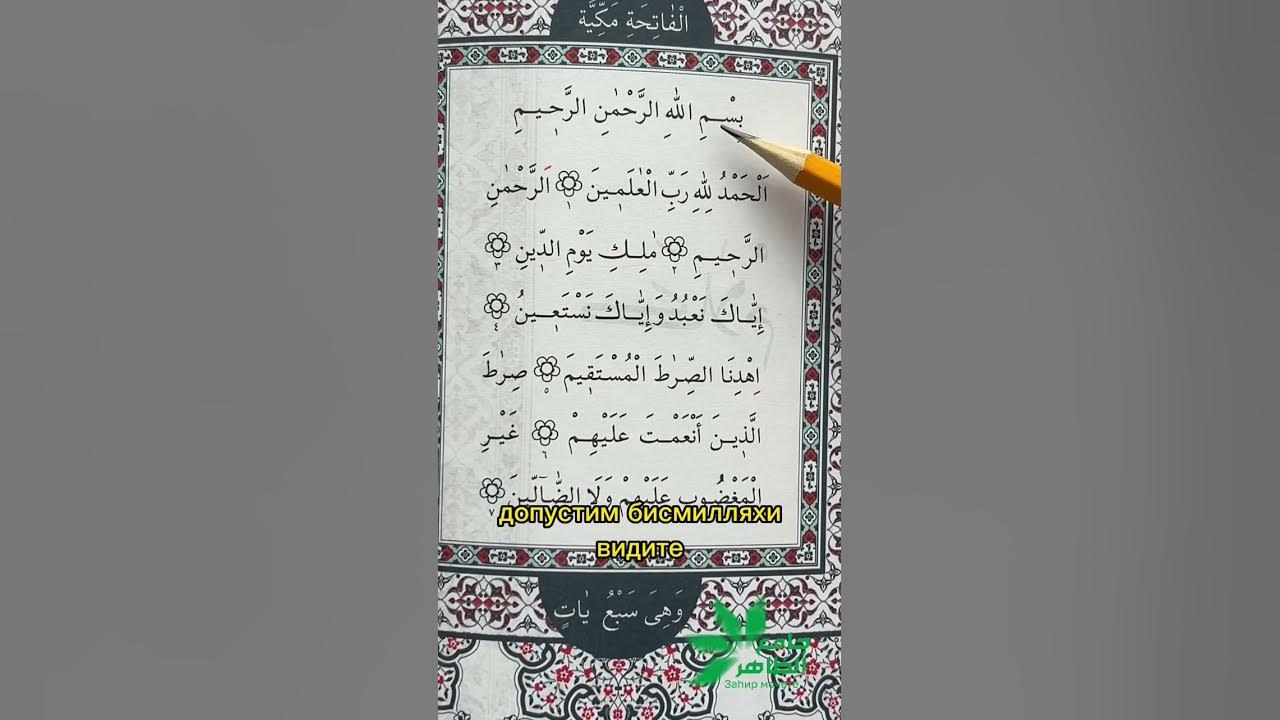 الْفَاتِحَةِ مَكِّيَّة
بِسْـمِ اللهِ الرَّحْمٰنِ الرَّحِيمِ
اَلْحَمْدُ لِلّٰهِ رَبِّ الْعٰلَمِينَ ١ اَلرَّحْمٰنِ
الرَّحِيمِ ٢ مٰلِكِ يَوْمِ الدِّينِ ٣
إِيَّاكَ نَعْبُدُ وَإِيَّاكَ نَسْتَعِينُ ٤
اِهْدِنَا الصِّرٰطَ الْمُسْتَقِيمَ ٥ صِرٰطَ
الَّذِينَ أَنْعَمْتَ عَلَيْهِمْ ٦ غَيْرِ
الْمَغْضُوبِ عَلَيْهِمْ وَلَا الضَّآلِّينَ ٧
допустим бисмилляхи
видите
وَهِىَ سَبْعُ يٰاتٍ
جامع
الظاهر
Заһир мәчете